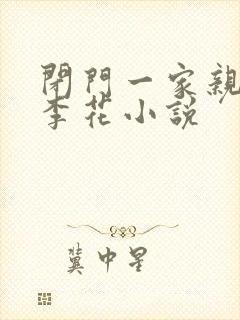 閉門一家親
李花小說
冀中星